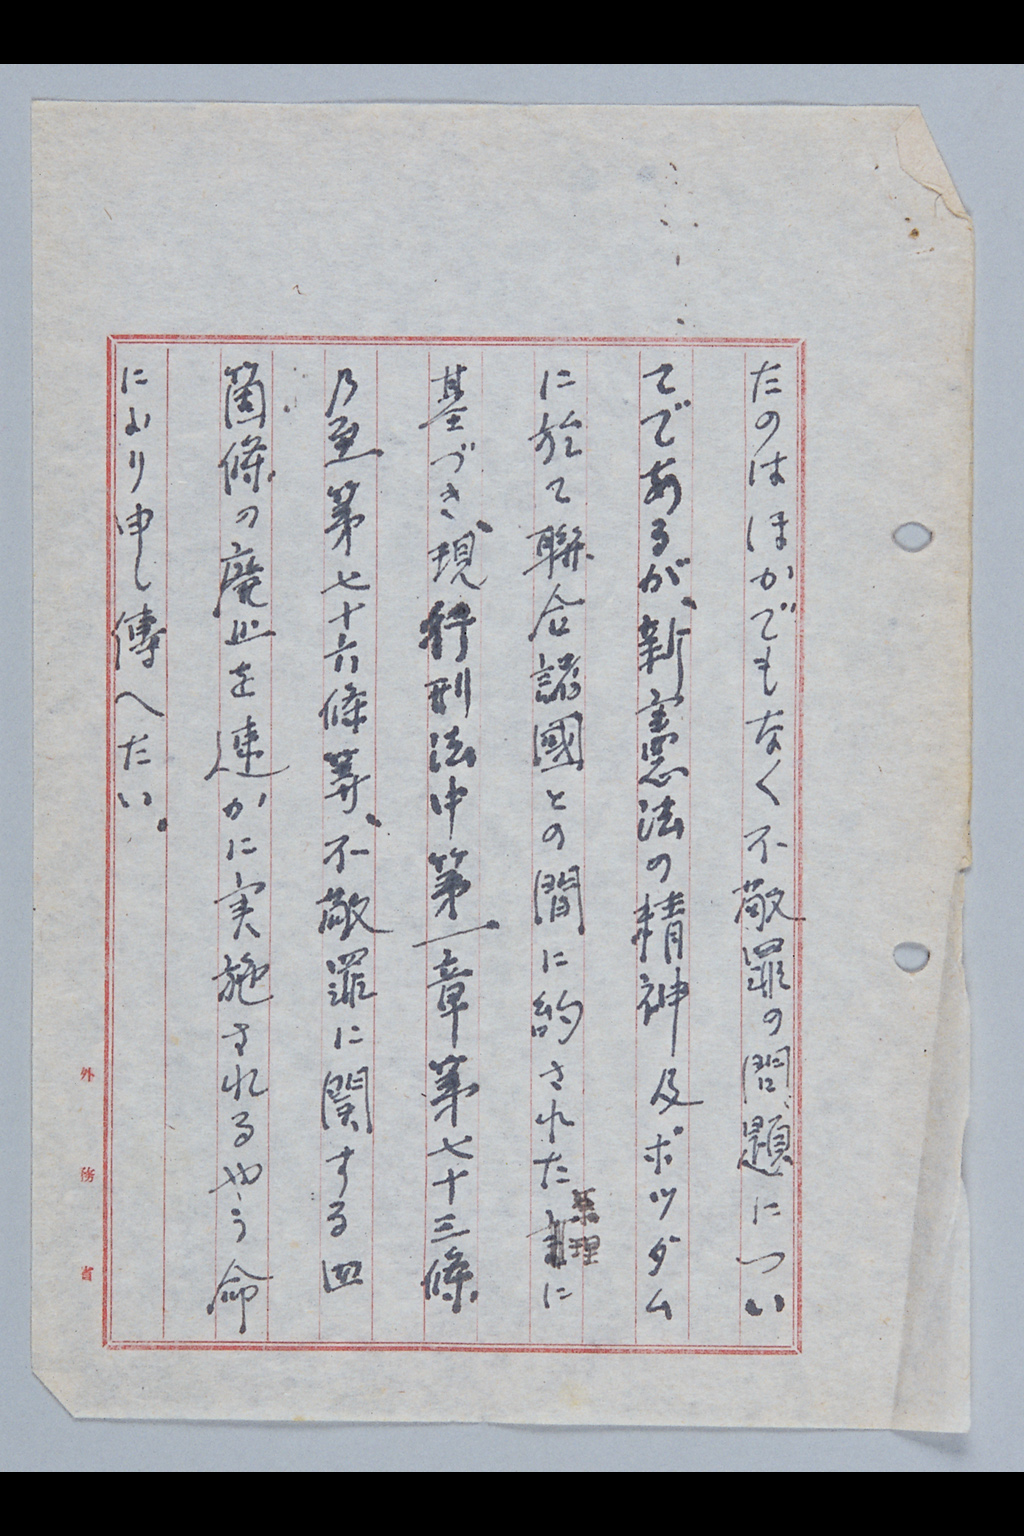 たのはほかでもなく不敬罪の問題につい
てであるが、新憲法の精神及ポツダム
に於て聯合諸國との間に約された原理に
基づき、現行刑法中第一章第七十三條
乃至第七十六條等、不敬罪に関する四
箇條の廃止を速かに実施されるやう命
により申し傳へたい。
外務省